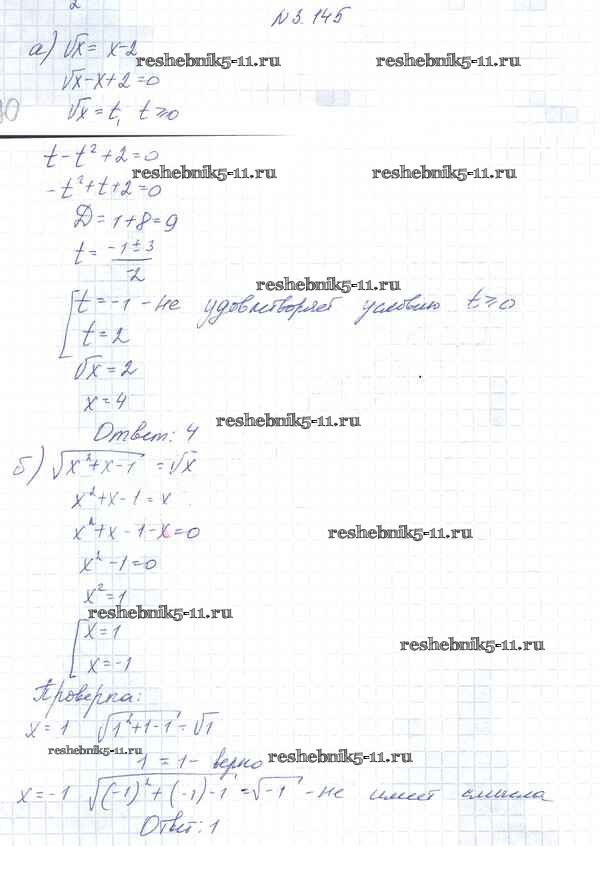 N 3.145
а) √x = x-2
reshebnik5-11.ru reshebnik5-11.ru
√x-x+2=0
√x=t, t≥0
t-t²+2=0
reshebnik5-11.ru reshebnik5-11.ru
-t²+t+2=0
D=1+8=9
t= (-1±3)/-2
reshebnik5-11.ru
[t=-1 - не удовлетворяет условию t≥0
t=2
√x=2
x=4
reshebnik5-11.ru
Ответ: 4
б) √(x²+x-1) = √x
x²+x-1=x
x²+x-1-x=0
reshebnik5-11.ru
x²-1=0
x²=1
reshebnik5-11.ru
[x=1
reshebnik5-11.ru
x=-1
Проверка:
x=1 √(1²+1-1)=√1
reshebnik5-11.ru
1=1- верно
reshebnik5-11.ru
x=-1 √((-1)²+(-1)-1)=√-1 - не имеет смысла
Ответ: 1